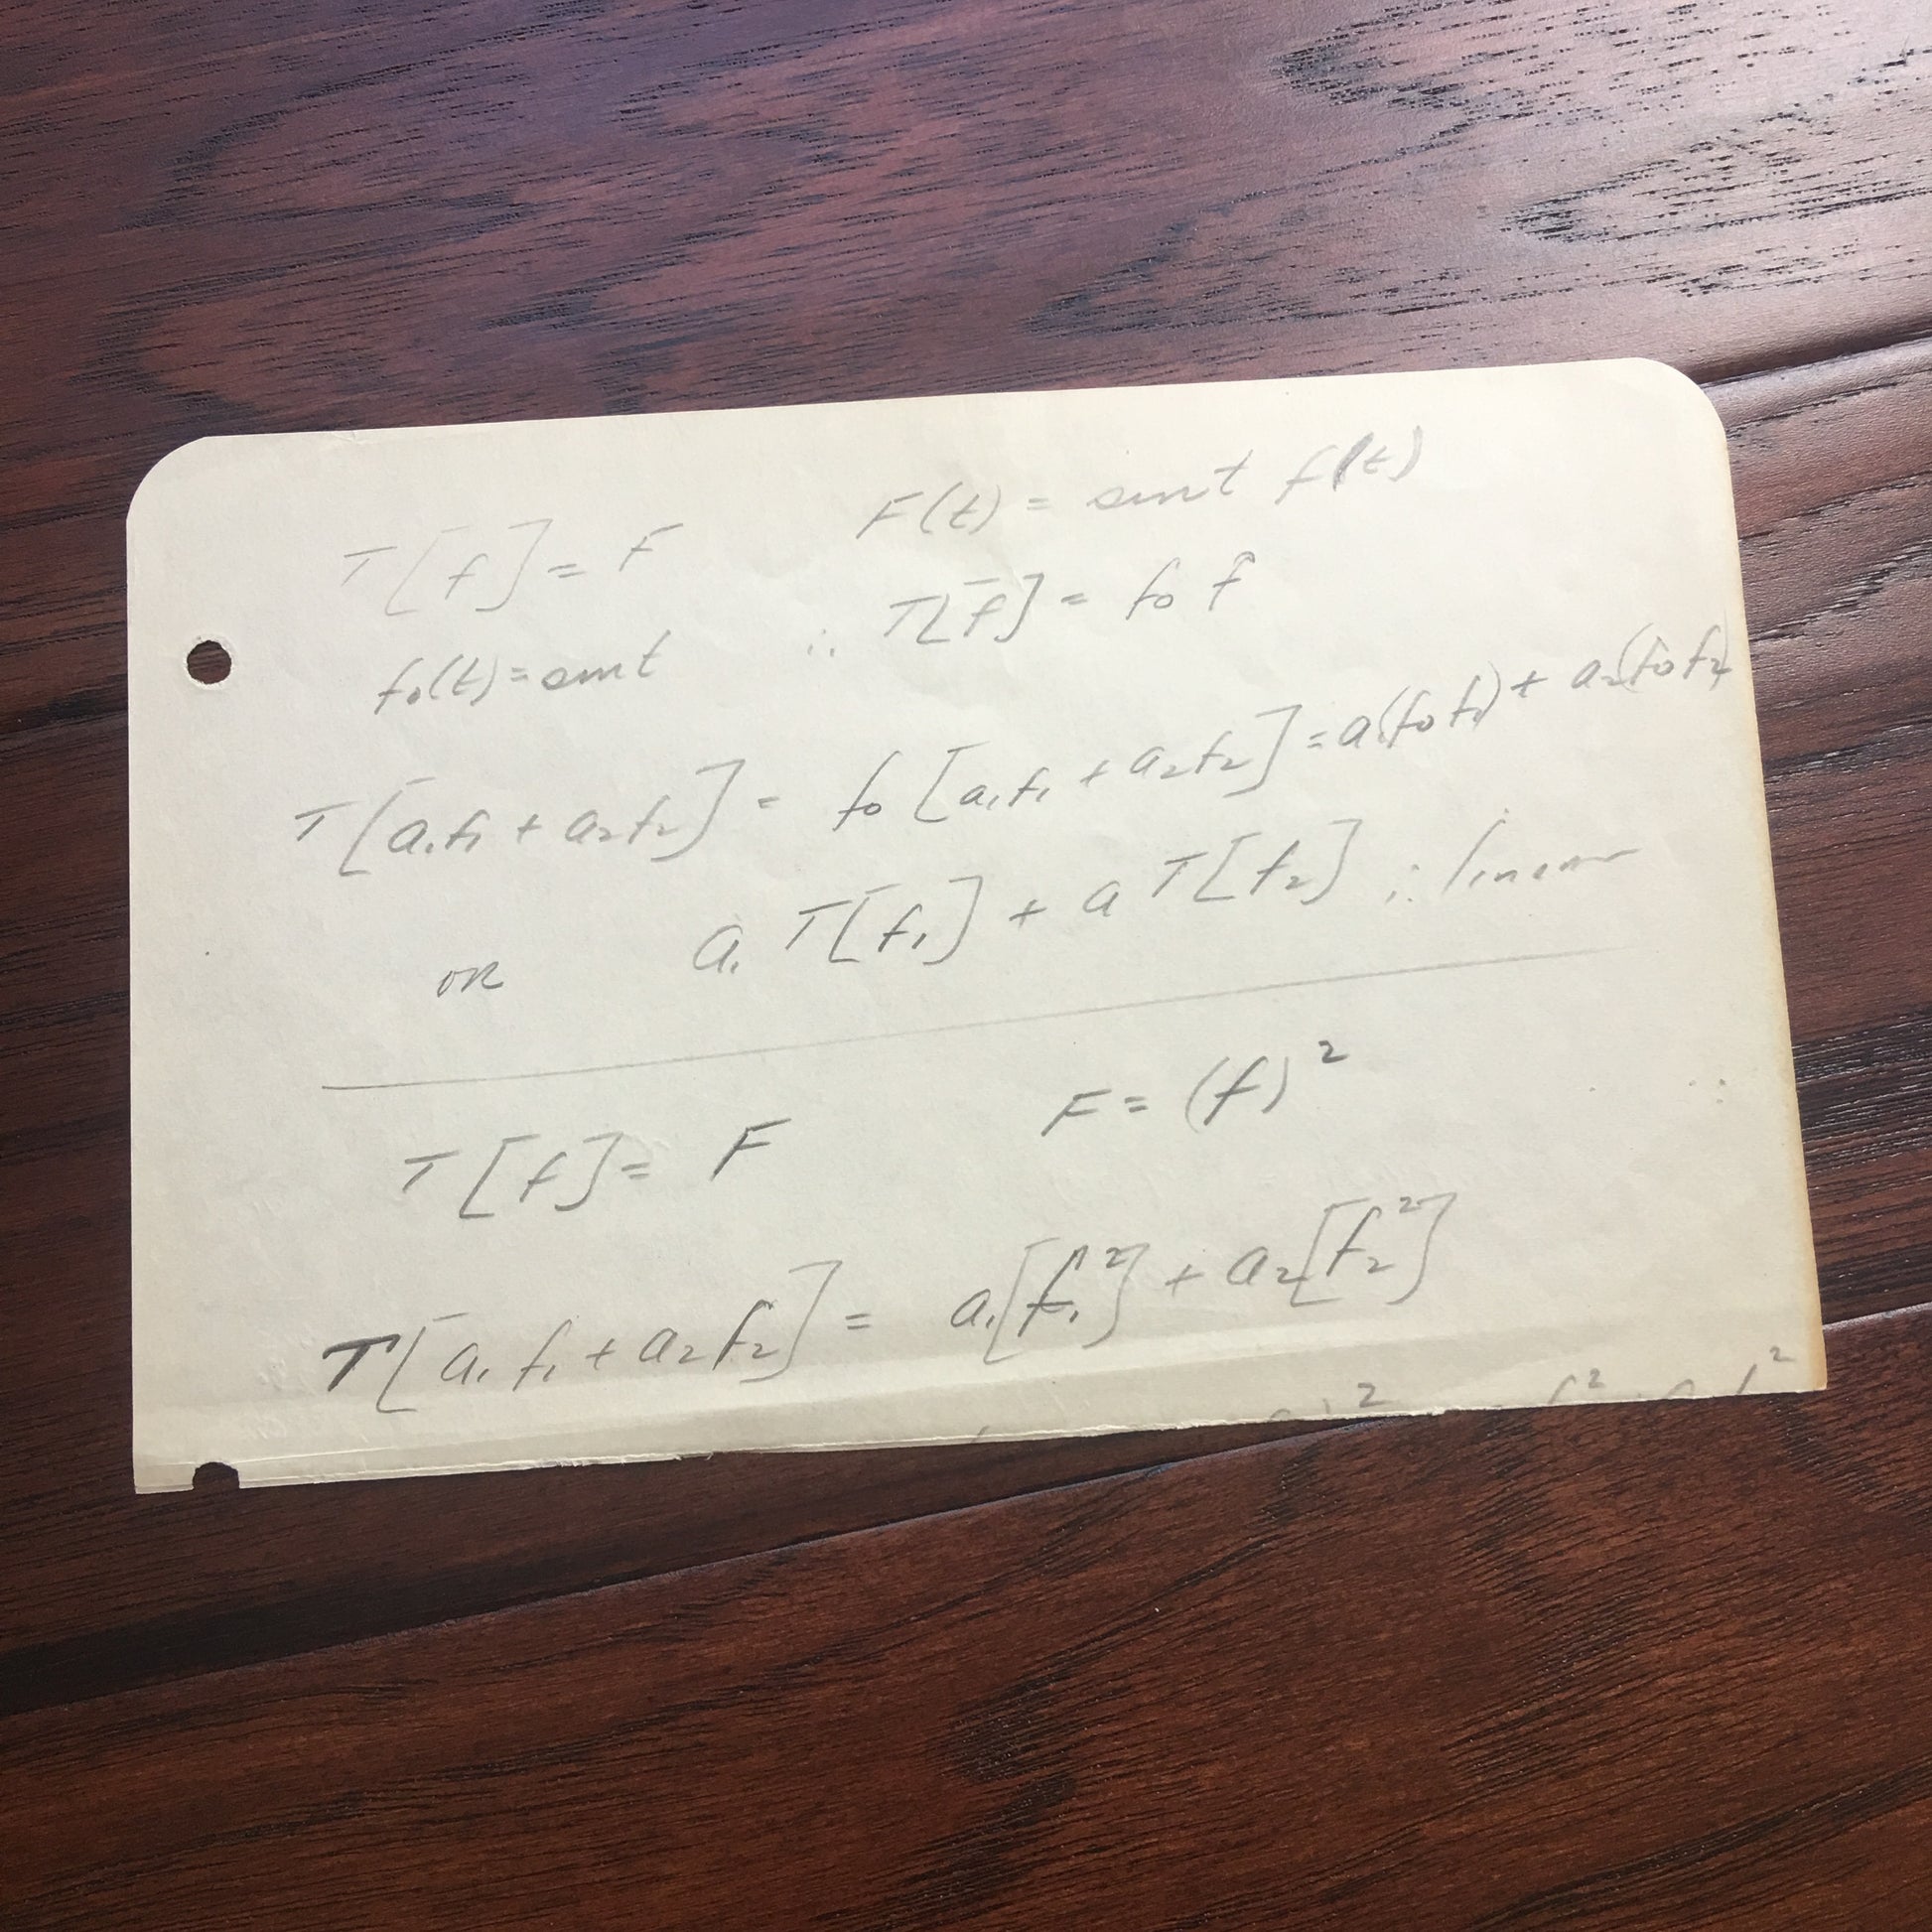 T[f] = F F(t) = sin t f(t)
f₀(t) = sin t ∴ T[f] = f₀ f
T[a₁f₁ + a₂f₂] = f₀ [a₁f₁ + a₂f₂] = a₁(f₀f₁) + a₂(f₀f₂)
OR a₁ T[f₁] + a T[f₂] ∴ linear
T[f] = F F = (f)²
T[a₁f₁ + a₂f₂] = a₁[f₁²] + a₂[f₂²]